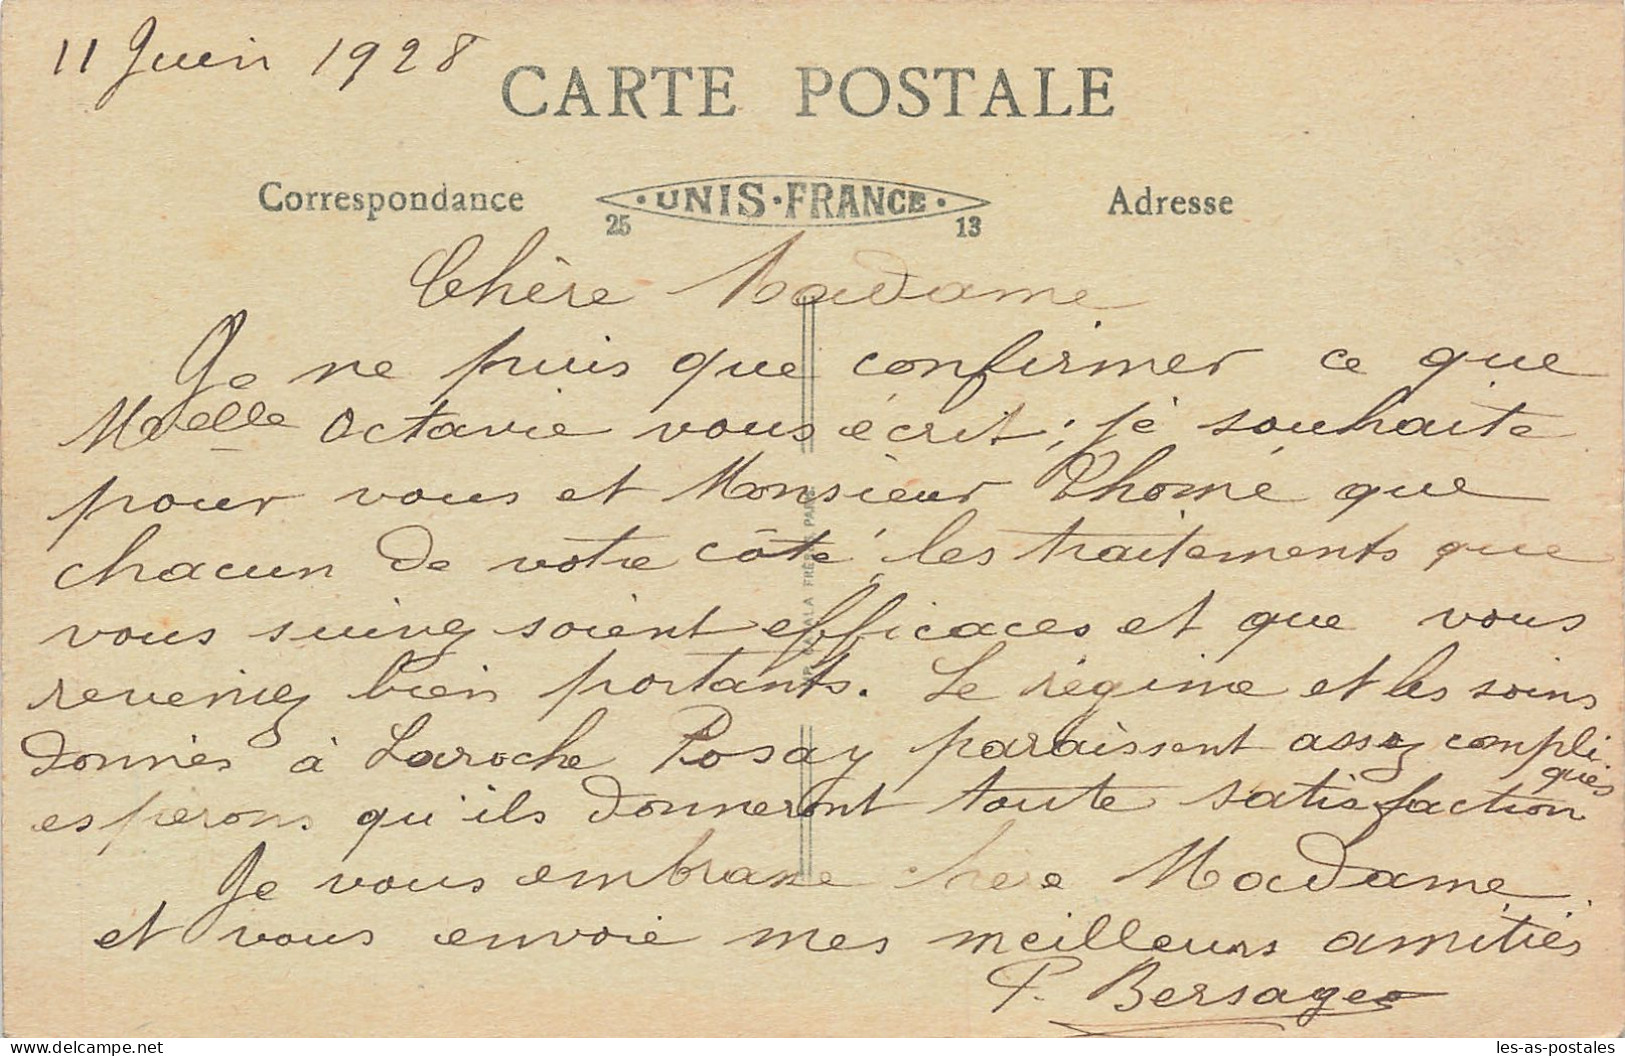 11 Juin 1928
CARTE POSTALE
Correspondance
· UNIS · FRANCE ·
25 13
Adresse
Chère Madame
Je ne puis que confirmer ce que
Melle Octavie vous écrit ; je souhaite
pour vous et Monsieur Thomé que
chacun de votre côté, les traitements que
vous suivez soient efficaces et que vous
reveniez bien portants. Le régime et les soins
donnés à Laroche Posay paraissent assez compli-
qués
espérons qu'ils donneront toute satisfaction
Je vous embrasse chère Madame
et vous envoie mes meilleurs amitiés
P. Bersageo
CATALA FRÈRES PARIS
les-as-postales